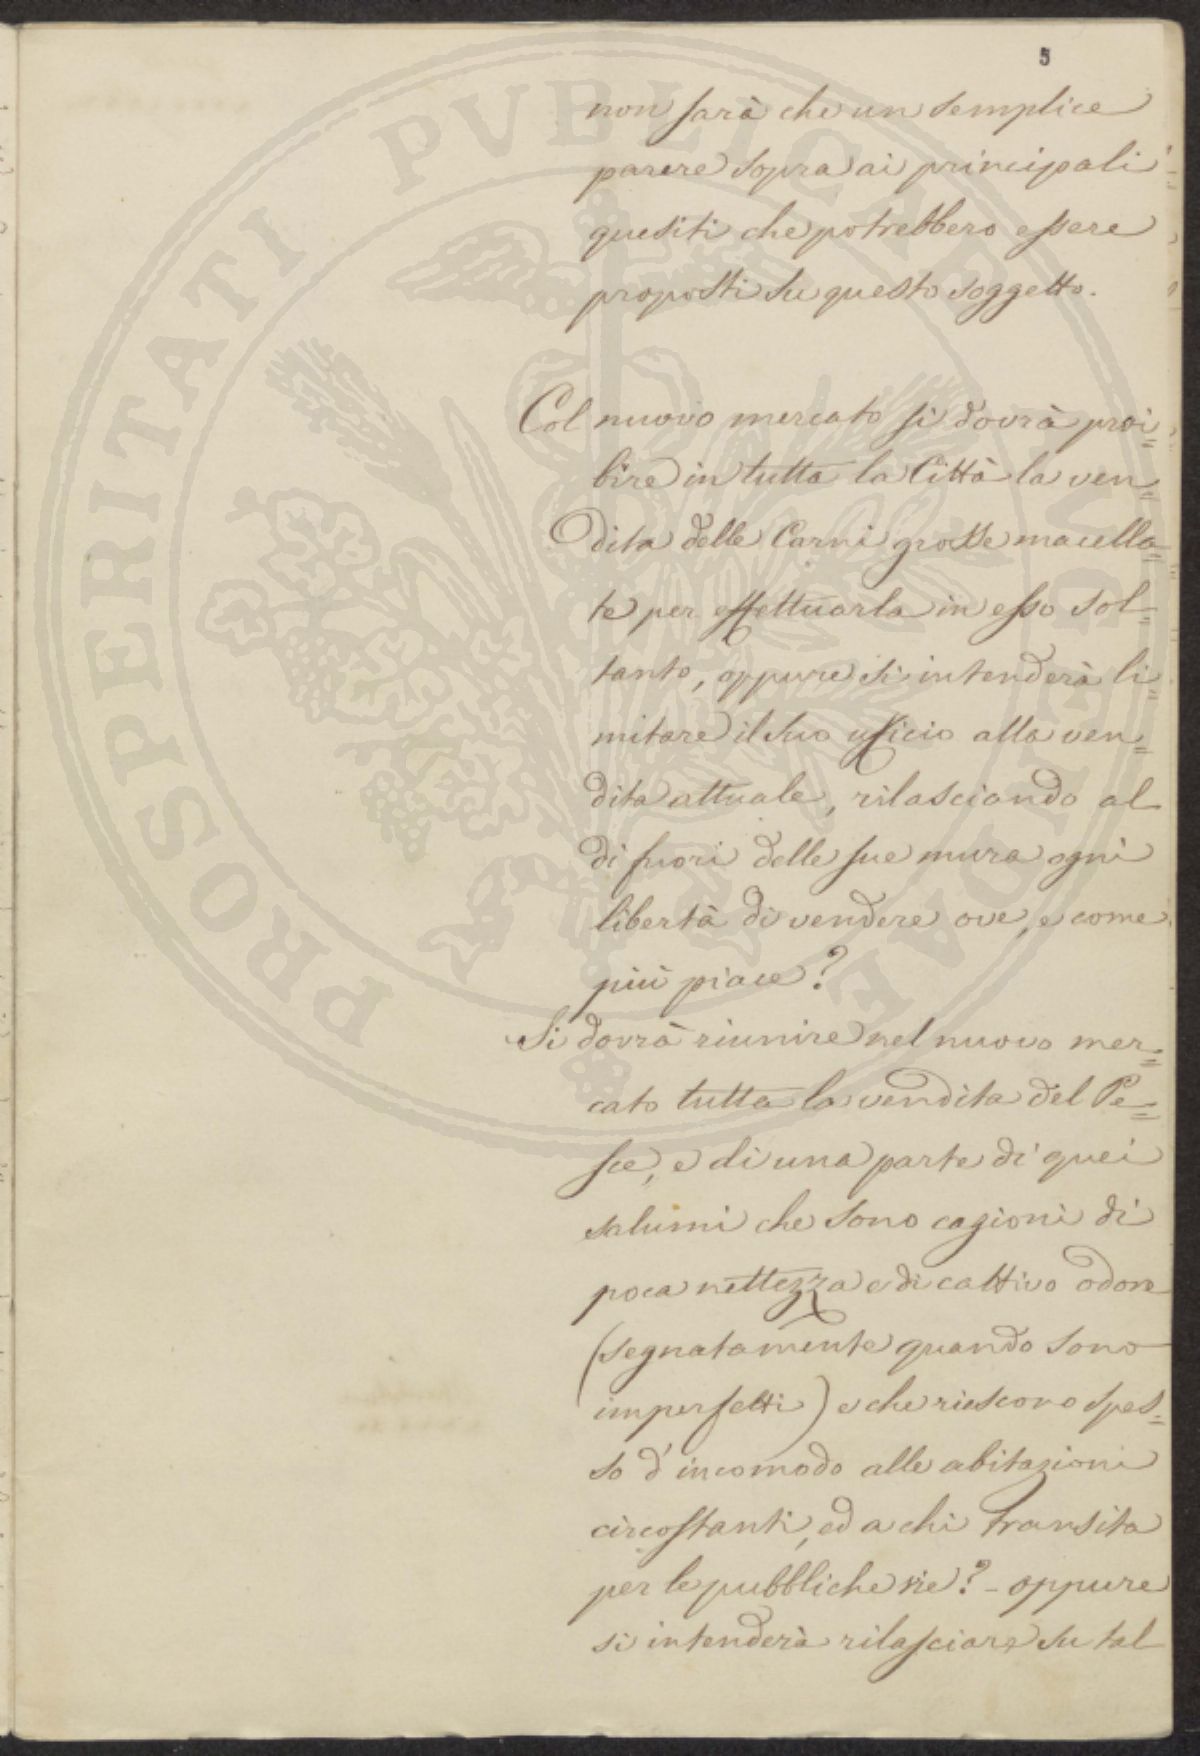 5
non sarà che un semplice
parere sopra ai principali
quesiti che potrebbero essere
proposti su questo soggetto.
Col nuovo mercato si dovrà proi=
bire in tutta la Città la ven=
dita delle Carni grosse macella=
te per effettuarla in esso sol=
tanto, oppure si intenderà li=
mitare il suo uficio alla ven=
dita attuale, rilasciando al
di fuori delle sue mura ogni
libertà di vendere ove, e come
più piace?
Si dovrà riunire nel nuovo mer=
cato tutta la vendita del Pe=
sce, e di una parte di quei
salumi che sono cagioni di
poca nettezza e di cattivo odore
(segnatamente quando sono
imperfetti) e che riescono spes=
so d'incomodo alle abitazioni
circostanti, ed a chi transita
per le pubbliche vie? - oppure
si intenderà rilasciare su tal
PROSPERITATI PVBLICAE AVGENDAE